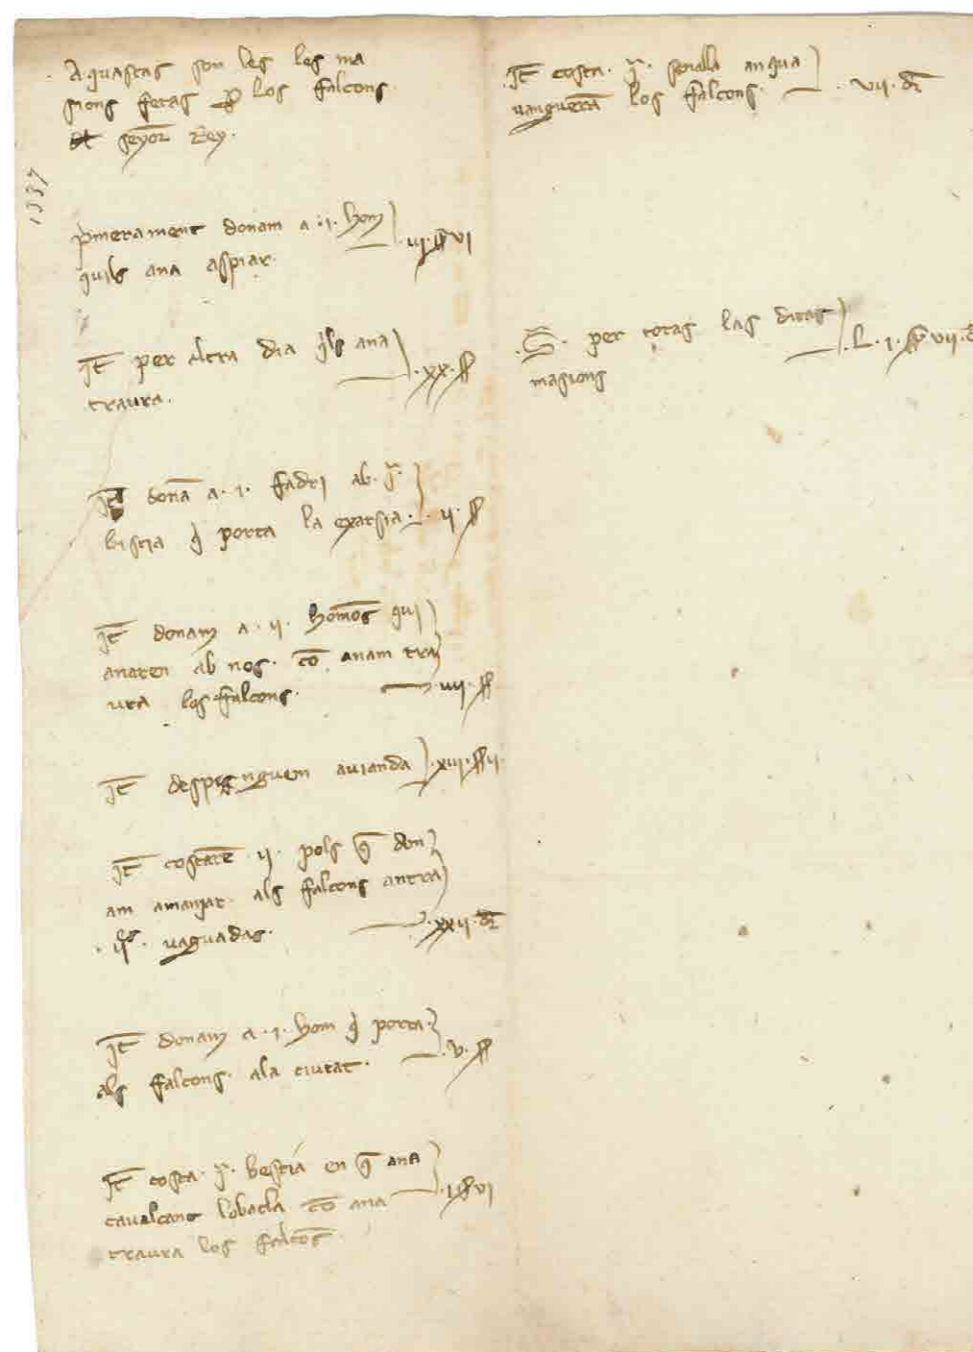 Aquastas son les les ma
sions fetas per los falcons
seyor Rey.
1337
primerament donam a .i. hom
quils ana aspiar. .iii. ss vi
Itē per altra dia qls ana
traura. .xx. ss
Itē donā a .i. fadri ab .jᵃ.
bistia q porta la exarsia. .ii. ss
Itē donam a .ii. homēs qui
anaren ab nos. cō anam tra
ura los falcons. .iiii. ss
Itē despenguem avianda .xiii. ss ii.
Itē costarē .ii. pols q̄ don
am amanjar als falcons antra
.iiᵉˢ. vaguadas. .xxii. dr̄
Itē donam a .i. hom q porta
als falcons. ala ciutat. .v. ss
Itē costa .jᵃ. bestia en q̄ ana
cavalcant lobacla cō ana .i. ss vi
traura los falcōs.
Itē costa .jᵃ. senalla anqua
vanguerā los falcons. .vii. dr̄
.S. per totas las ditas
masions .L.i. ss vii. d